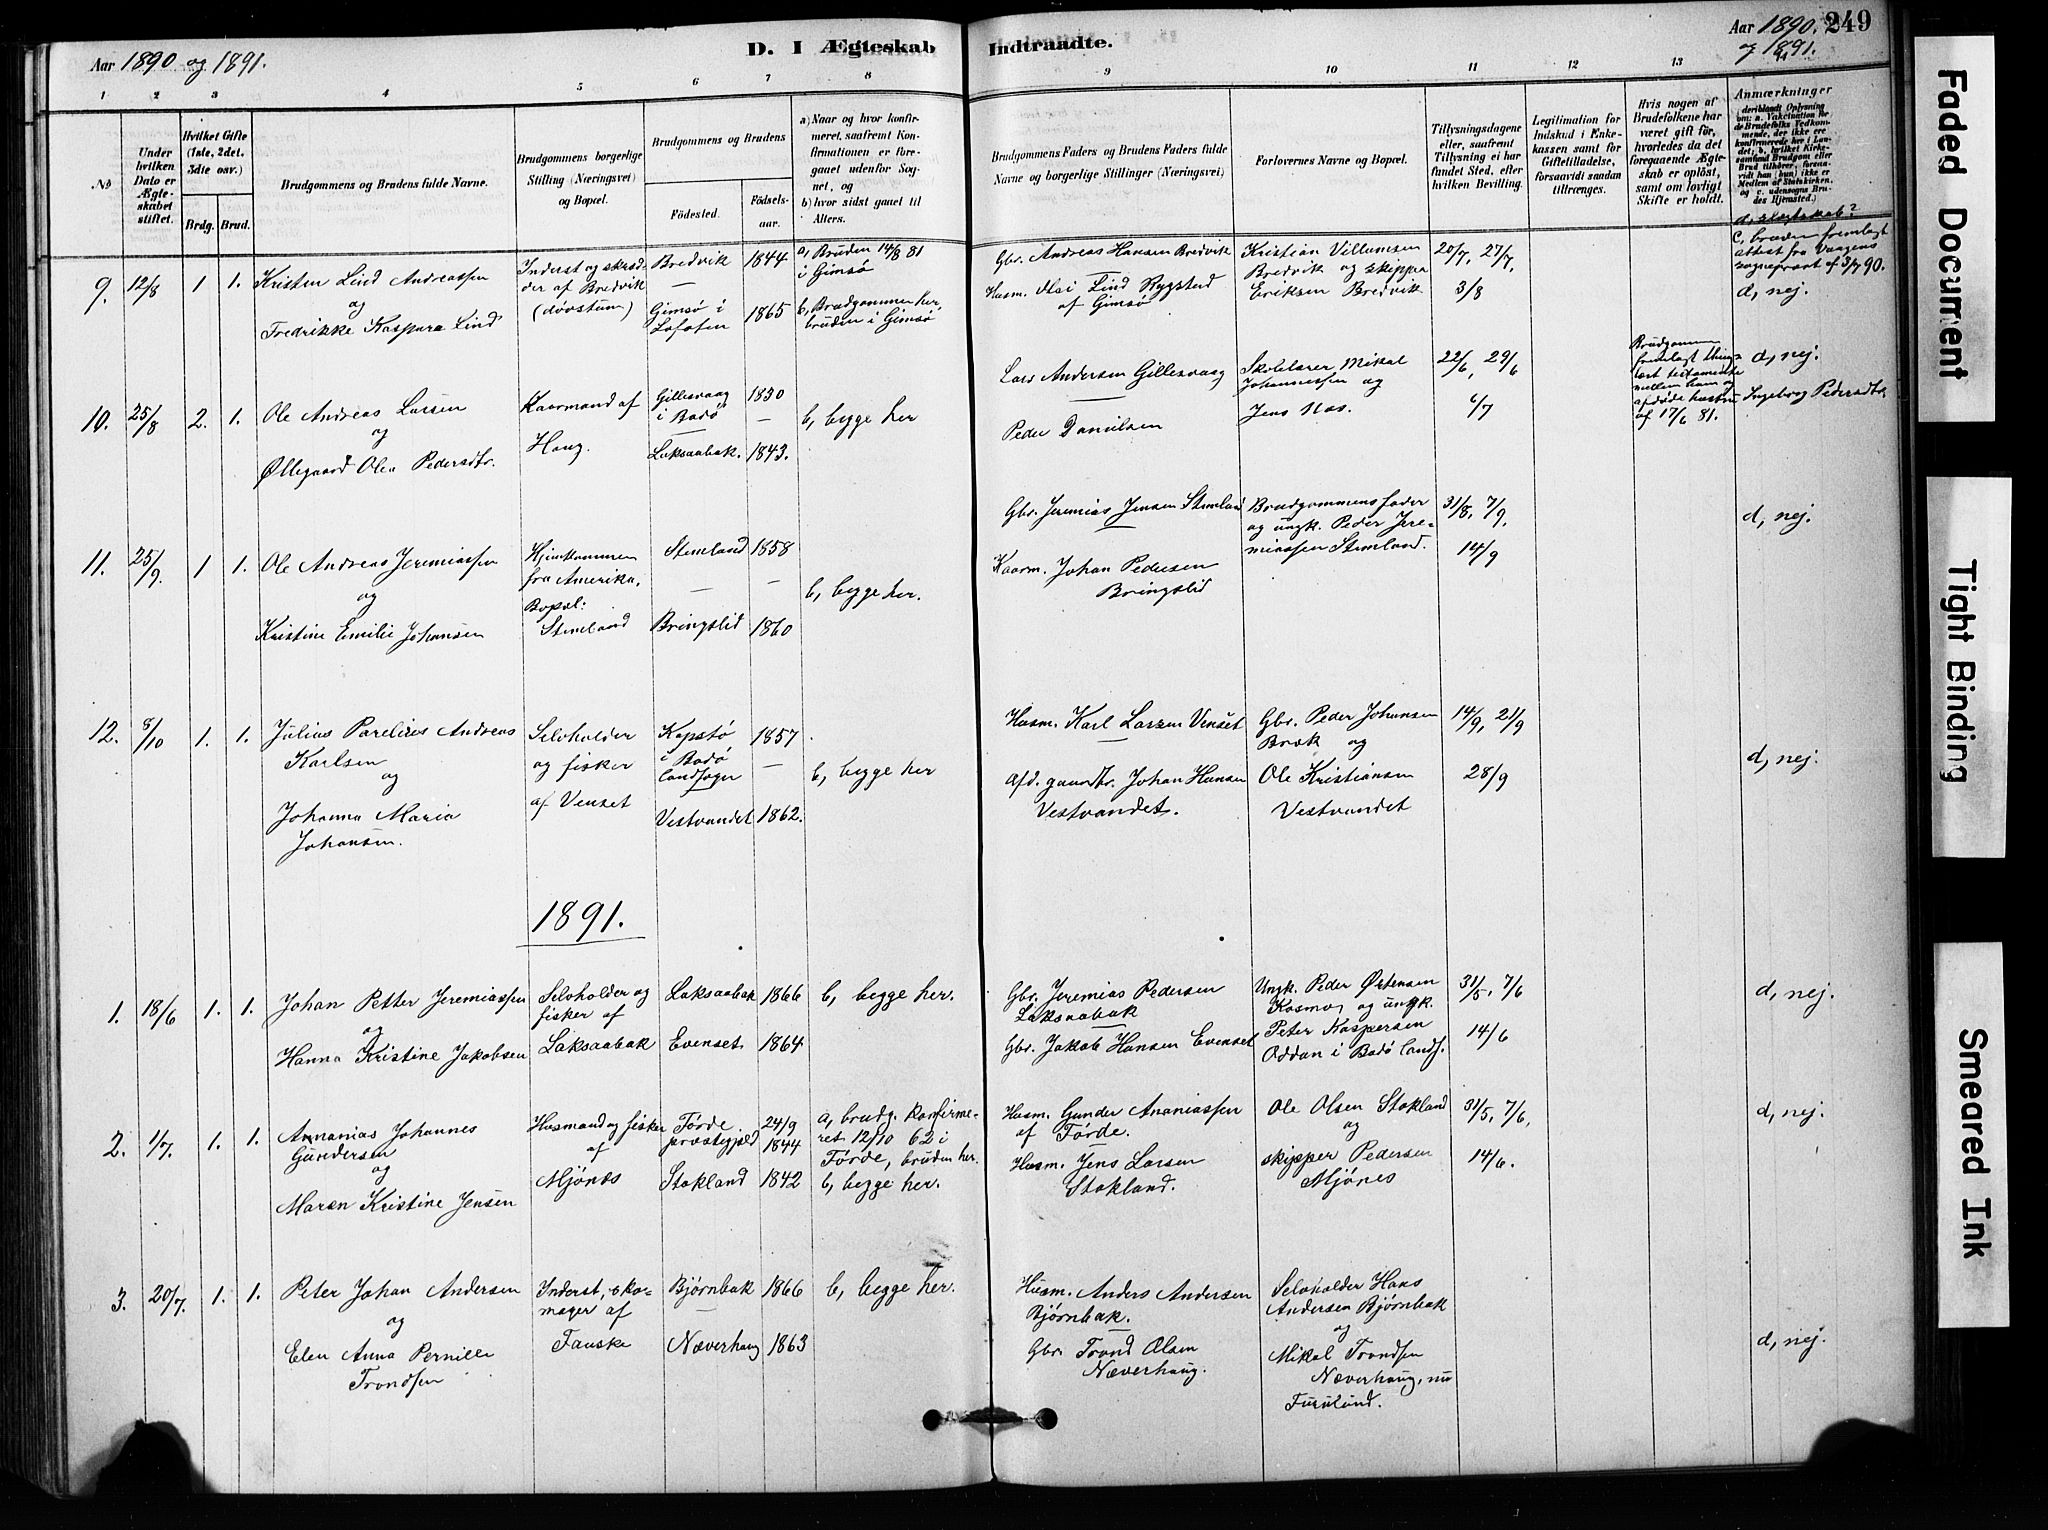 Aar 1890 og 1891.
D. I Ægteskab
Indtraadte.
Aar 1890. 249
og 1891.
1 2 3 4 5 6 7 8 9 10 11 12 13
No
Under hvilken Dato er Ægteskabet stiftet.
Hvilket Gifte (1ste, 2det, 3die osv.)
Brdg. Brud.
Brudgommens og Brudens fulde Navne.
Brudgommens borgerlige Stilling (Næringsvei) og Bopæl.
Brudgommens og Brudens
Födested. Födselsaar.
a) Naar og hvor konfirmeret, saafremt Konfirmationen er foregaaet udenfor Sognet, og
b) hvor sidst gaaet til Alters.
Brudgommens Faders og Brudens Faders fulde Navne og borgerlige Stillinger (Næringsvei)
Forlovernes Navne og Bopæl.
Tillysningsdagene eller, saafremt Tillysning ei har fundet Sted, efter hvilken Bevilling.
Legitimation for Indskud i Enkekassen samt for Giftetilladelse, forsaavidt saadan tiltrænges.
Hvis nogen af Brudefolkene har været gift för, hvorledes da det foregaaende Ægteskab er oplöst, samt om lovligt Skifte er holdt.
Anmærkninger
deriblandt Oplysning om: a. Vakcination for de Brudefolks Vedkommende, der ikke ere konfirmerede her i Landet; b. hvilket Kirkesamfund Brudgom eller Brud tilhörer, forsaavidt han (hun) ikke er Medlem af Statskirken, og c. udensogns Brudes Hjemsted.)
d, slægtskab?
9. 12/8 1 1. Kristen Lind Andreassen
og
Fredrikke Kaspara Lind
Inderst og skrædder af Bredvik
(døvstum)
Bredvik 1844
Gimsø i Lofoten 1865
a, Bruden 14/8 81
i Gimsø
b, Brudgommen her,
bruden i Gimsø
Gbr. Andreas Hansen Bredvik
Husm. Lind Rygsted
af Gimsø
Kristian Villumsen
Bredvik og skipper
Eriksen Bredvik
20/7, 27/7,
3/8
c, bruden fremlagt
attest fra Vaagens
sogneprest af 3/7 90.
d, nej.
10. 25/8 2. 1. Ole Andreas Larsen
og
Øllegaard Olea Pedersdtr.
Kaarmand af
Haug.
Gillesvaag
i Bodø 1830
Laksaabak. 1843.
b, begge her
Lars Andersen Gillesvaag
Peder Danielsen
Skolelærer Mikal
Johannessen og
Jens Nos.
22/6, 29/6
6/7
Brudgommen
fremlagt thing-
læst testamente
mellem ham og
afdøde hustru
af 17/6 81.
d, nej.
Ingeborg Pedersdtr.
11. 25/9. 1 1. Ole Andreas Jeremiassen
og
Kristine Emilie Johansen
Hjemkommen
fra Amerika,
Bopæl:
Stemland
Stemland 1858
Bringslid 1860
b, begge her.
Gbr. Jeremias Jensen Stemland
Kaarm. Johan Pedersen
Bringslid
Brudgommens fader
og ungk. Peder Jere-
miassen Stemland.
31/8, 7/9,
14/9
d, nej.
12. 8/10 1. 1. Julius Parelius Andreas
Karlsen
og
Johanna Maria
Johansen.
Selvholder
og fisker
af Venset
Kopstø
i Bodø
landsogn 1857
Vestvandet 1862.
b, begge her
Husm. Karl Larsen Venset
Afd. gaardbr. Johan Hansen
Vestvandet.
Gbr. Peder Johansen
Bræk og
Ole Kristiansen
Vestvandet
14/9, 21/9
28/9
d, nej.
1891.
1. 18/6 1. 1. Johan Petter Jeremiassen
og
Hanna Kristine Jakobsen
Selvholder og
fisker af
Laksaabak
Laksaabak 1866
Evenset 1864
b, begge her.
Gbr. Jeremias Pedersen
Laksaabak
Gbr. Jakob Hansen Evenset
Ungk. Peder Østensen
Kosmo, og ungk.
Peter Kaspersen
Oddan i Bodø lands.
31/5, 7/6
14/6
d, nej.
2. 1/7. 1. 1. Annanias Johannes
Gundersen
og
Maren Kristine Jensen
Husmand og fisker
af
Mjønes
Førde
præstegjeld 24/9 1844
Stokland 1842
a, brudg. konfirme-
ret 12/10 62 i
Førde, bruden her.
b, begge her.
Husm. Gunder Ananiassen
af Førde.
Husm. Jens Larsen
Stokland.
Ole Olsen Stokland
og
skipper Pedersen
Mjønes
31/5, 7/6,
14/6.
d, nej.
3. 20/7. 1. 1. Peter Johan Andersen
og
Elen Anna Pernille
Trondsen
Inderst, sko-
mager af
Fauske
Bjørnbak 1866
Næverhaug 1863
b, begge her.
Husm. Anders Andersen
Bjørnbak.
Gbr. Trond Olsen
Næverhaug.
Selvholder Hans
Andersen Bjørnbak
og
Mikal Trondsen
Næverhaug, nu
Furulund.
d, nej.
Faded Document
Tight Binding
Smeared Ink